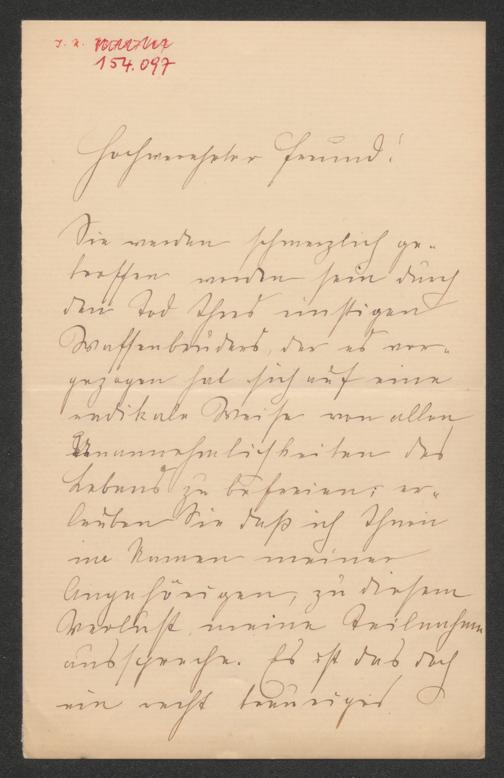 J. N.
154.097
Hochverehrter Freund!
Sie werden schmerzlich ge-
troffen worden sein durch
den Tod Ihres einstigen
Waffenbruders, der es vor-
gezogen hat sich auf eine
radikale Weise von allen
Unannehmlichkeiten des
Lebens zu befreien; er-
lauben Sie daß ich Ihnen
im Namen meiner
Angehörigen, zu diesem
Verlust meine Teilnahme
ausspreche. Es ist das doch
ein recht trauriges